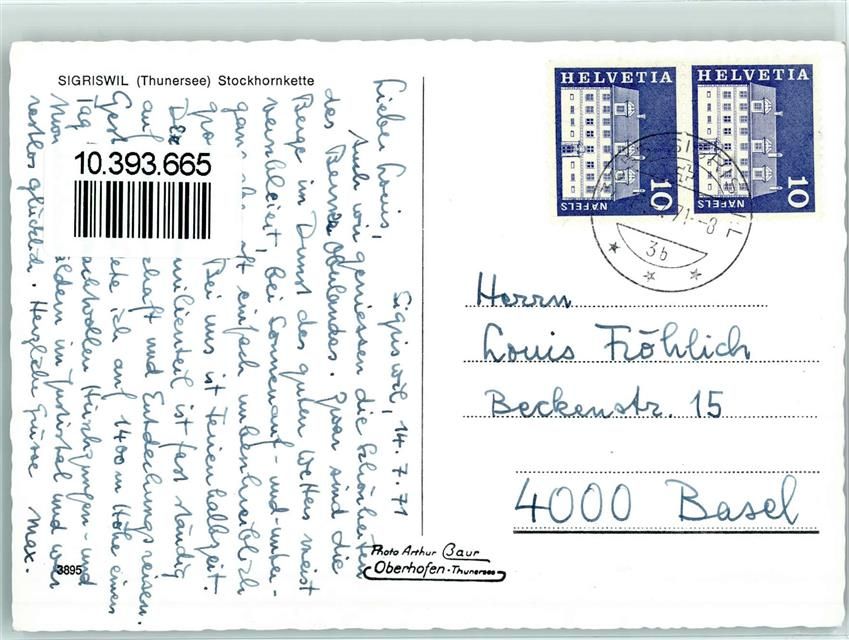 SIGRISWIL (Thunersee) Stockhornkette
10.393.665
Sigriswil, 14.7.71
Lieber Louis,
Auch wir geniessen die Schönheiten
des Berner Oberlandes. Zwar sind die
Berge im Dunst des guten Wetters meist
verschleiert, bei Sonnenauf- und -unter-
gang aber oft einfach unbeschreiblich
Bei uns ist Ferienhalbzeit.
Der milienteil ist fast ständig
auf schaft und Entdeckungsreisen.
Gest te ich auf 1400 m Höhe einen
schtvollen Hirsch
Mor ildern im Justistal und war
restlos glücklich. Herzliche Grüsse Max.
3895
Photo Arthur Baur
Oberhofen-Thunersee
HELVETIA
NÄFELS
10
HELVETIA
NÄFELS
10
SIGRISWIL
71-8
3b
Herrn
Louis Fröhlich
Beckenstr. 15
4000 Basel